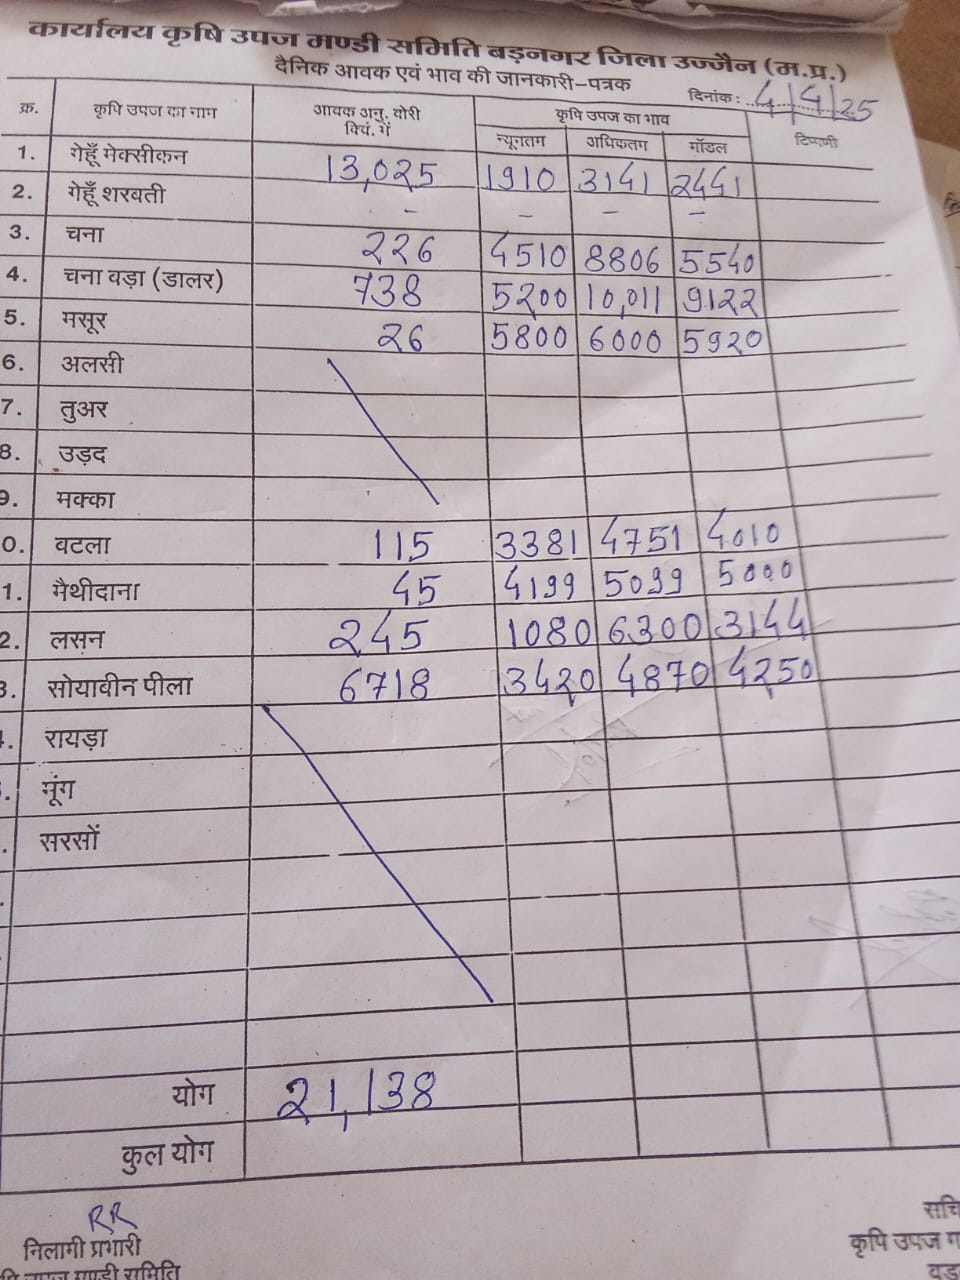 कार्यालय कृषि उपज मण्डी समिति बड़नगर जिला उज्जैन (म.प्र.)
दैनिक आवक एवं भाव की जानकारी-पत्रक
दिनांक : 4/4/25
क्र. कृषि उपज का नाम आवक अनु. बोरी क्विं. में कृषि उपज का भाव टिप्पणी
न्यूनतम अधिकतम मॉडल
1. गेहूँ मेक्सीकन 13,025 1910 3141 2441
2. गेहूँ शरबती - - - -
3. चना 226 4510 8806 5540
4. चना बड़ा (डालर) 738 5200 10,011 9122
5. मसूर 26 5800 6000 5920
6. अलसी
7. तुअर
8. उड़द
9. मक्का
0. बटला 115 3381 4751 4010
1. मैथीदाना 45 4199 5099 5000
2. लसन 245 1080 6300 3144
3. सोयाबीन पीला 6718 3420 4870 4250
. रायड़ा
. मूंग
. सरसों
योग 21,138
कुल योग
RR
निलामी प्रभारी सचि
कृषि उपज म
मण्डी समिति बड़